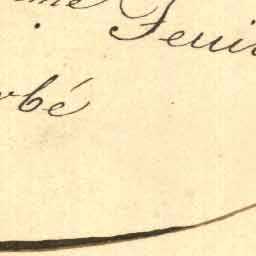 me Feui
rbé